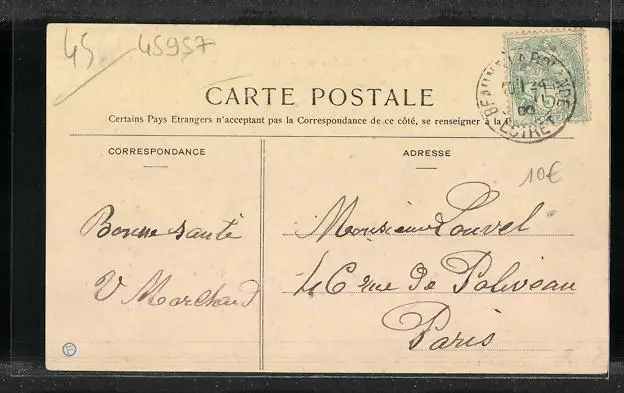 45 45957
BEAUNE-LA-ROLANDE
LOIRET
CARTE POSTALE
Certains Pays Etrangers n'acceptant pas la Correspondance de ce côté, se renseigner à la
CORRESPONDANCE
ADRESSE
10€
Bonne santé
V Marchand
Monsieur Louvel
46 rue de Poliveau
Paris